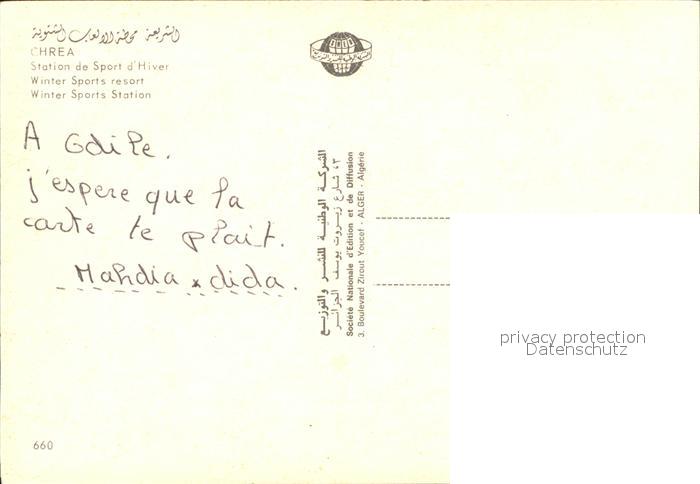 الشريعة محطة الالعاب الشتوية
CHREA
Station de Sport d'Hiver
Winter Sports resort
Winter Sports Station
A Odile.
j'espere que la
carte te plait.
Mahdia x dida.
الشركة الوطنية للنشر والتوزيع
٤٣ شارع زيروت يوسف الجزائر
Société Nationale d'Edition et de Diffusion
3. Boulevard Zirout Youcef - ALGER - Algérie
privacy protection
Datenschutz
660